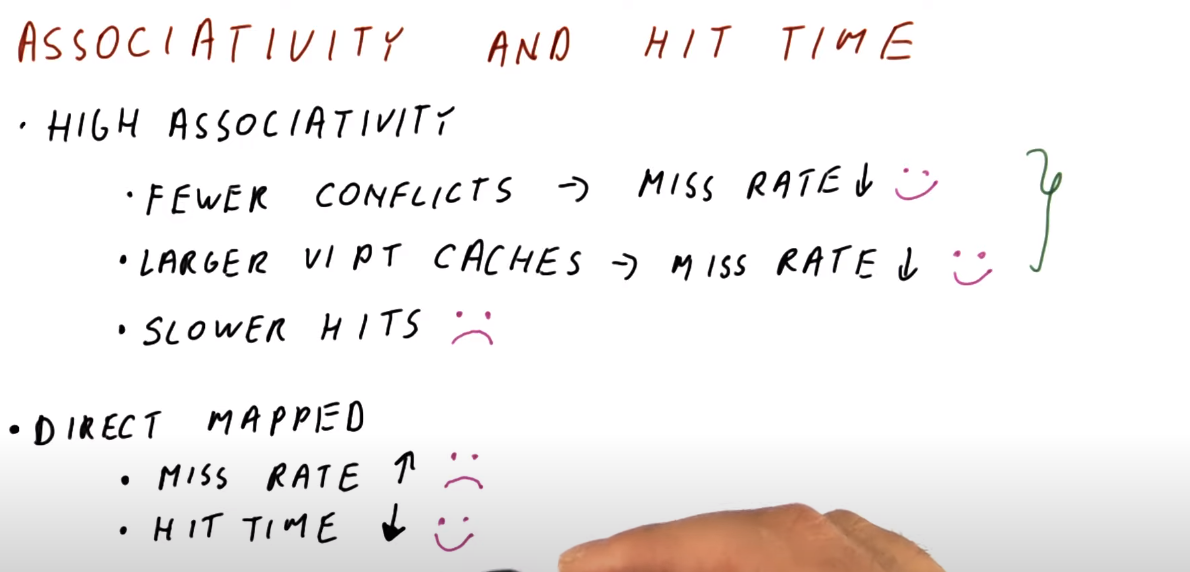 ASSOCIATIVITY AND HIT TIME
• HIGH ASSOCIATIVITY
• FEWER CONFLICTS → MISS RATE ↓
• LARGER VIPT CACHES → MISS RATE ↓
• SLOWER HITS
• DIRECT MAPPED
• MISS RATE ↑
• HIT TIME ↓